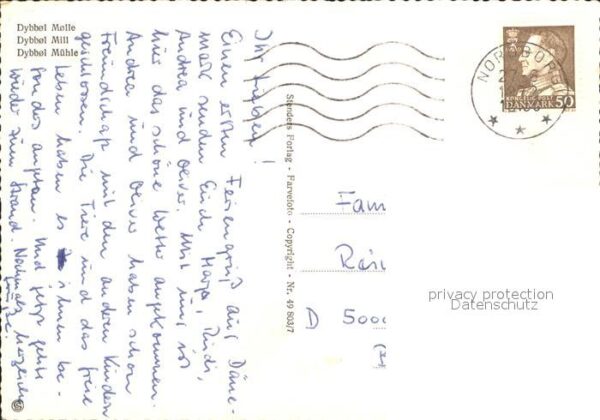 Dybbøl Mølle
Dybbøl Mill
Dybbøl Mühle
Ihr Lieben!
Einen ersten Feriengruß aus Däne-
mark senden Euch Marga, Rudi,
Andrea und Oliver. Mit uns ist
hier das schöne Wetter angekommen.
Andrea und Oliver haben schon
Freundschaft mit den anderen Kindern
geschlossen. Die Tiere und das freie
Leben haben es ihnen be-
sonders angetan. Und jetzt geht
wieder zum Strand. Nochmals herzliche
Grüße!
Stenders Forlag - Farvefoto - Copyright - Nr. 49 803/7
NORDBORG
DANMARK 50
Fam
D 5000
privacy protection
Datenschutz